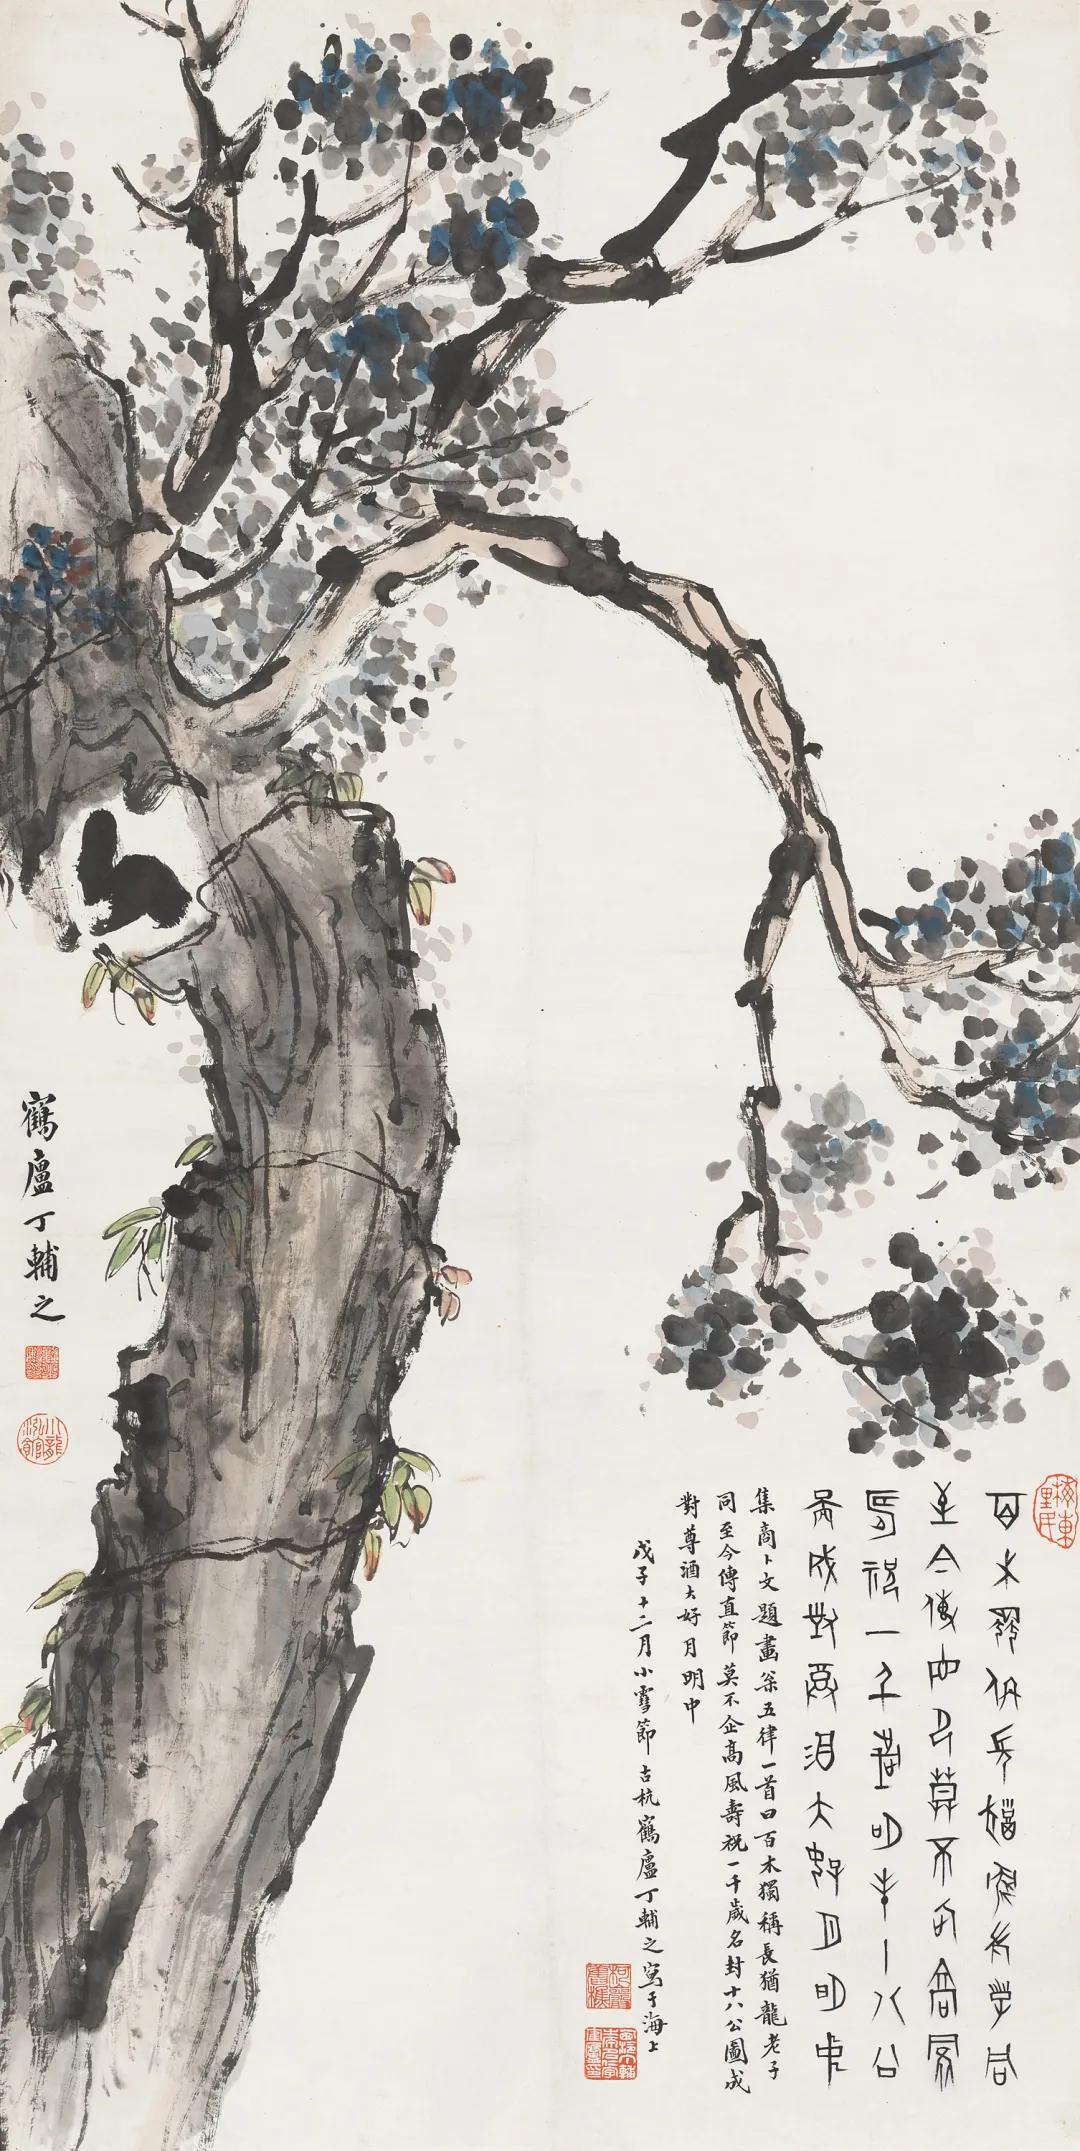 百木獨稱長猶龍老子同
至今傳直節莫不企高風
壽祝一千歲名封十八公
圖成對尊酒大好月明中
集商卜文題畫枀五律一首曰百木獨稱長猶龍老子
同至今傳直節莫不企高風壽祝一千歲名封十八公圖成
對尊酒大好月明中
戊子十二月小雪節古杭鶴廬丁輔之寫于海上
鶴廬丁輔之
小龍泓館